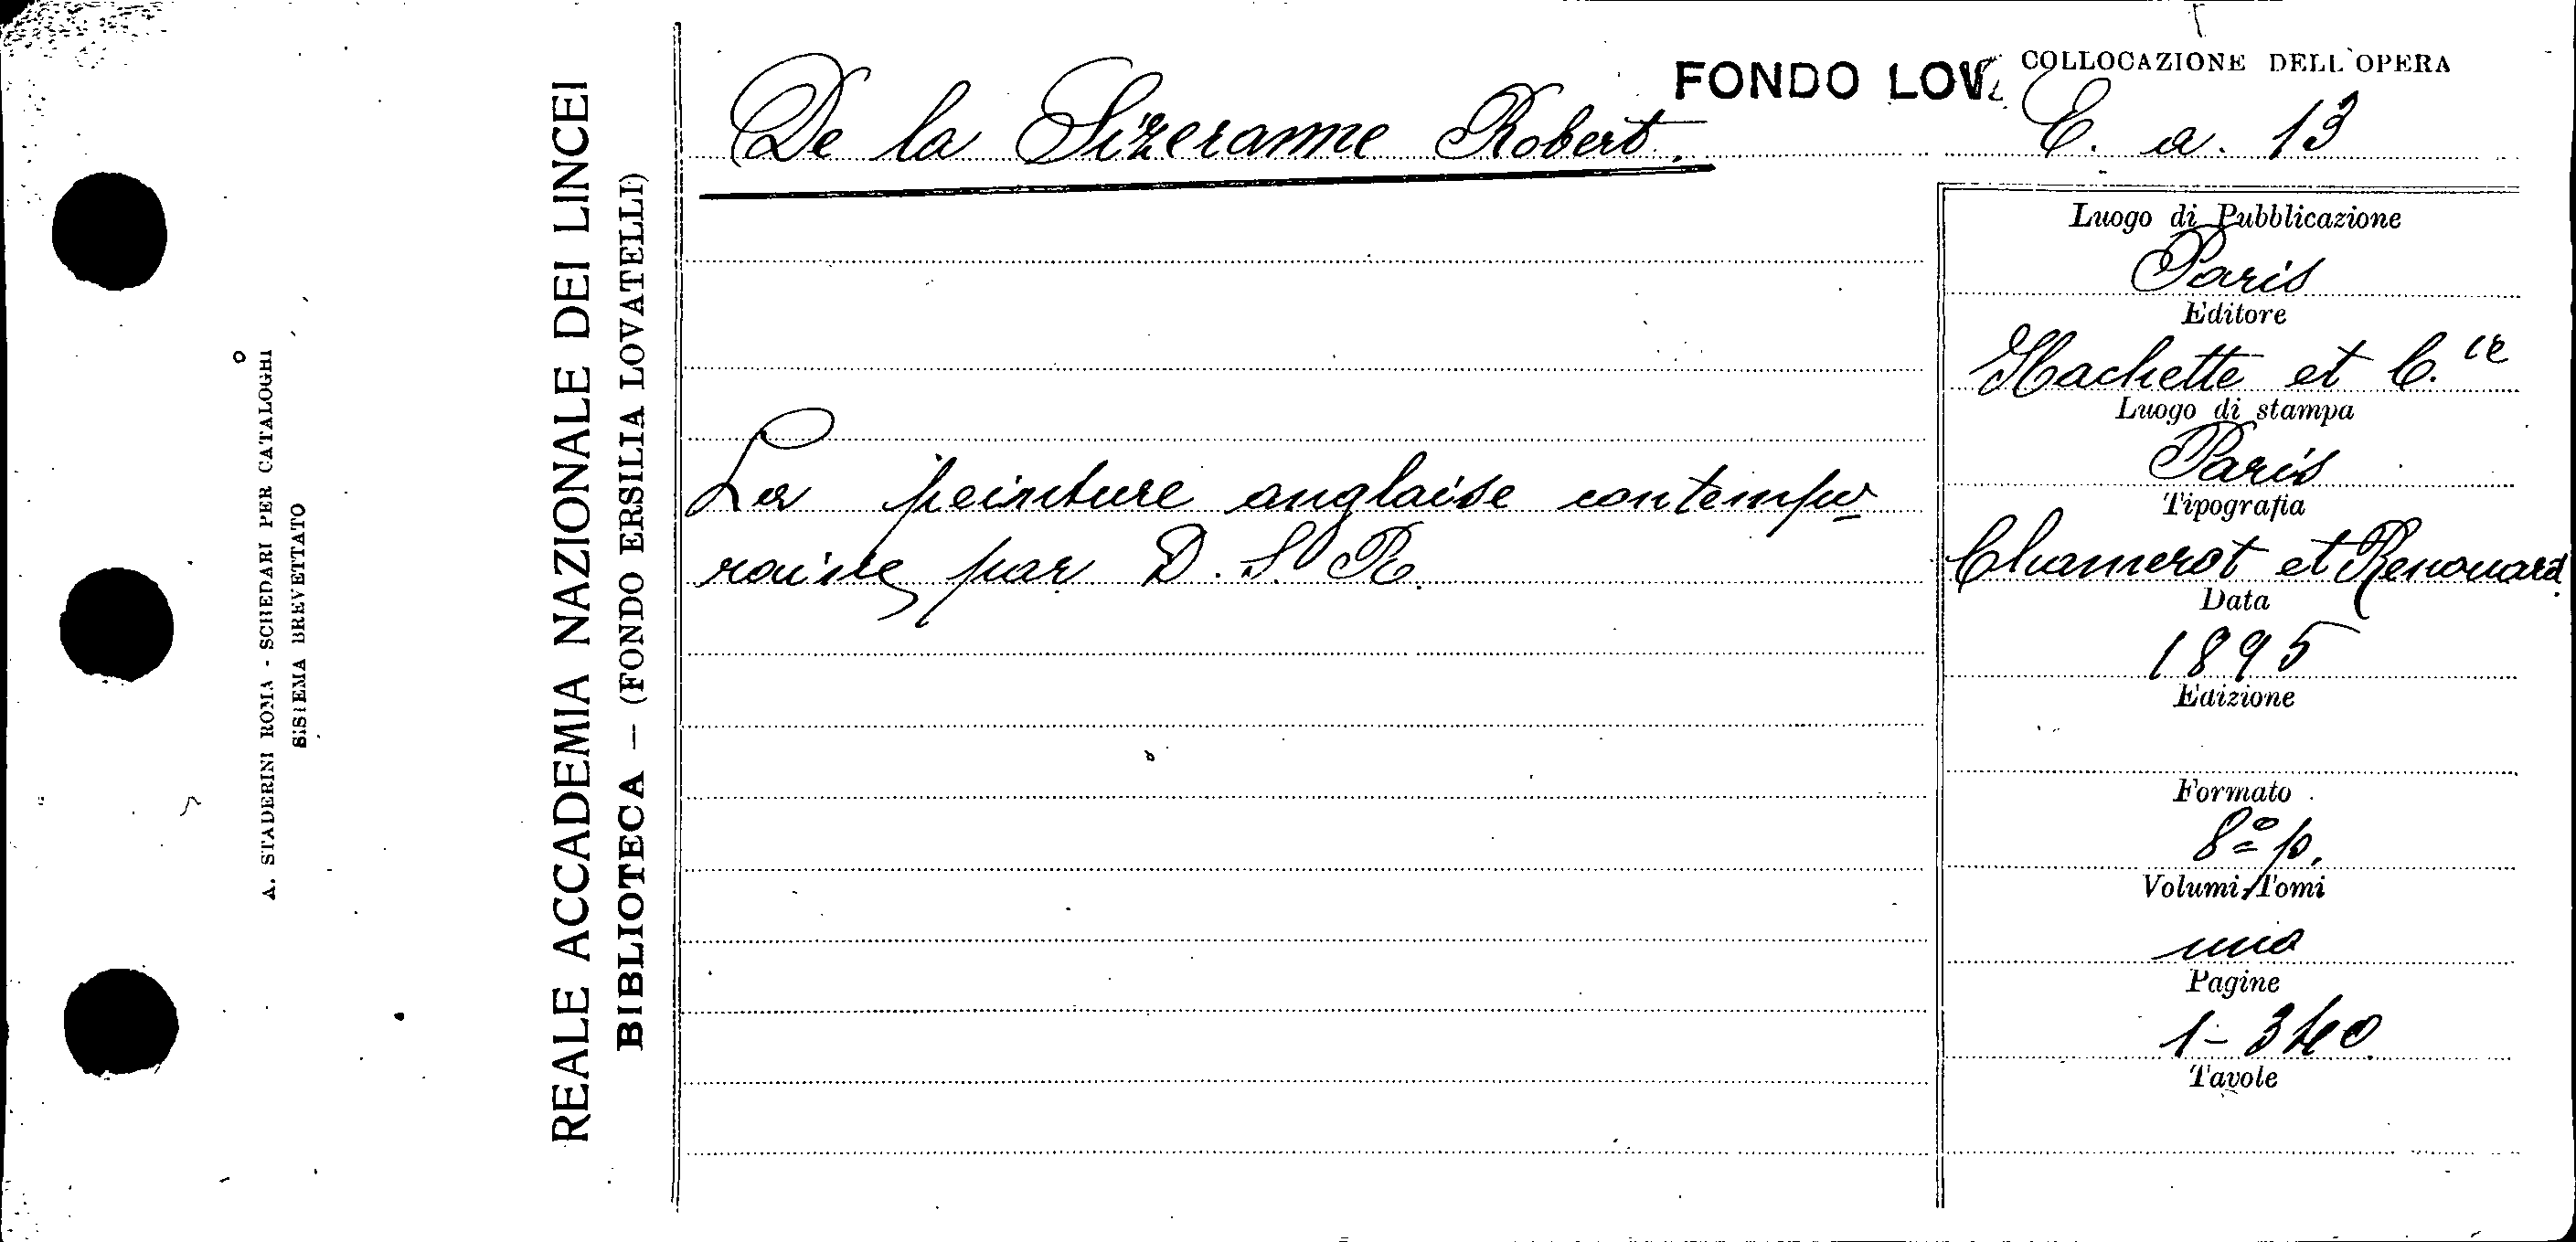 A. STADERINI ROMA - SCHEDARI PER CATALOGHI
SISTEMA BREVETTATO
REALE ACCADEMIA NAZIONALE DEI LINCEI
BIBLIOTECA — (FONDO ERSILIA LOVATELLI)
De la Sizeranne Robert.
FONDO LOV
La peinture anglaise contempo-
raine, par D. S. R.
COLLOCAZIONE DELL'OPERA
C. a. 13
Luogo di Pubblicazione
Paris
Editore
Hachette et C.ie
Luogo di stampa
Paris
Tipografia
Chamerot et Renouard.
Data
1895
Edizione
Formato
8º p.
Volumi, Tomi
uno
Pagine
1-340
Tavole